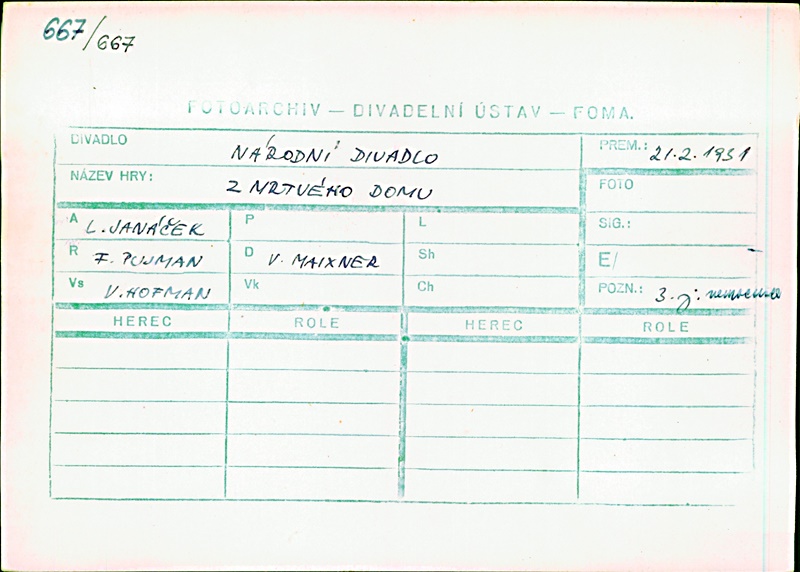 667/667
FOTOARCHIV — DIVADELNÍ ÚSTAV — FOMA.
DIVADLO NÁRODNÍ DIVADLO PREM.: 21.2.1931
NÁZEV HRY: Z MRTVÉHO DOMU FOTO
A L. JANÁČEK P L SIG.:
R F. PUJMAN D V. MAIXNER Sh E/
Vs V. HOFMAN Vk Ch POZN.: 3. j:
HEREC ROLE HEREC ROLE